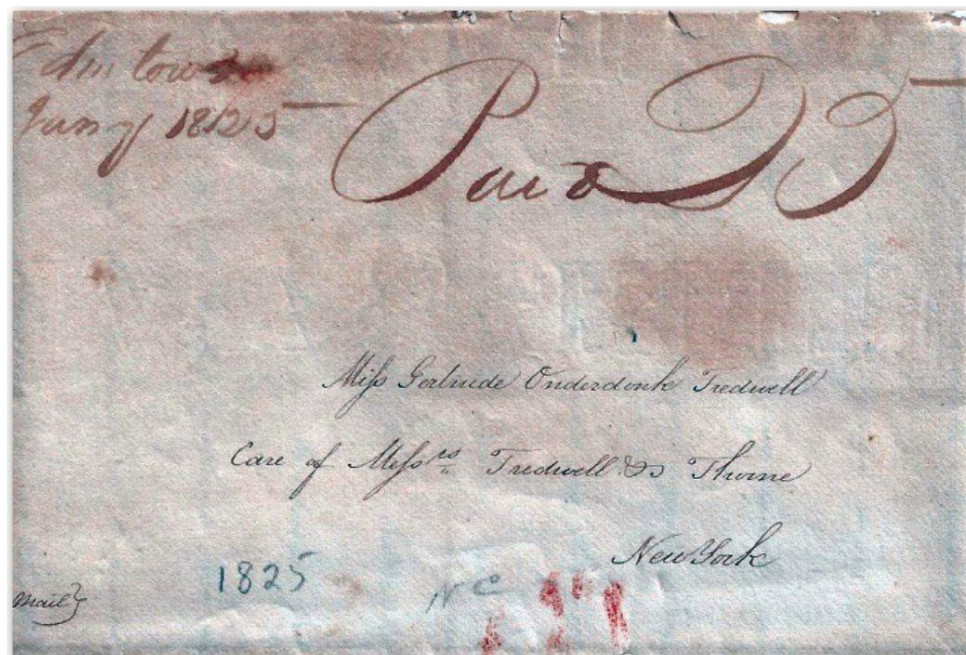 Edm town
Jany 1825
Paid 25
Miss Gertrude Onderdonk Tredwell
Care of Messrs Tredwell & Thorne
New York
1825
NC
Mail